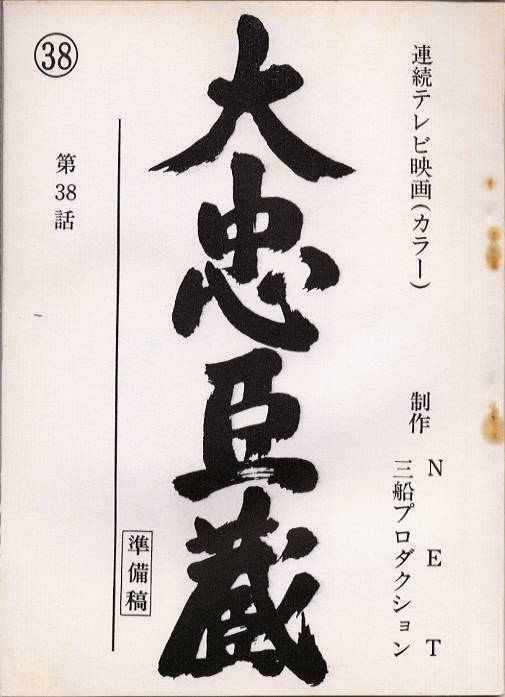 連続テレビ映画(カラー)
制作
NET
三船プロダクション
大忠臣蔵
準備稿
第38話
㊳